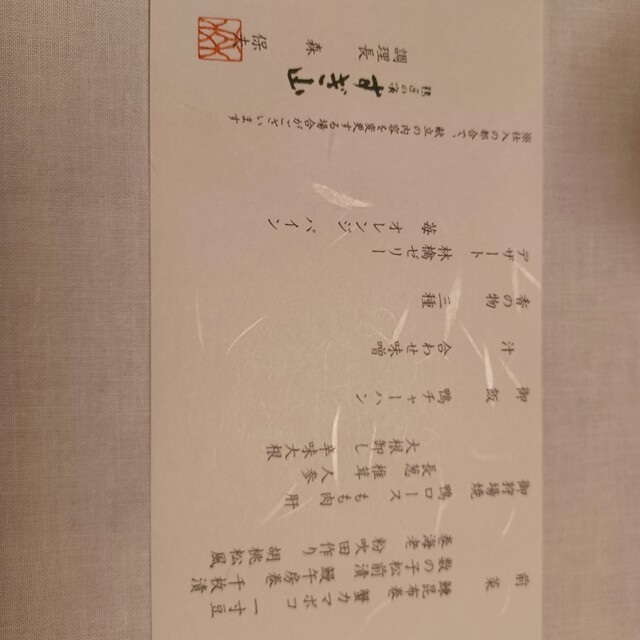 前菜
鰊昆布巻 蟹カマボコ 一寸豆
数の子松前漬 鰻午房巻 千枚漬
巻海老 粉吹田作り 胡桃松風
御狩場焼
鴨 ロース もも肉 肝
長葱 椎茸 人参
大根卸し 辛味大根
御飯 鴨チャーハン
汁 合わせ味噌
香の物 三種
デザート 林檎ゼリー
苺 オレンジ パイン
※仕入の都合で、献立の内容を変更する場合がございます
すぎ山
調理長 森 保夫